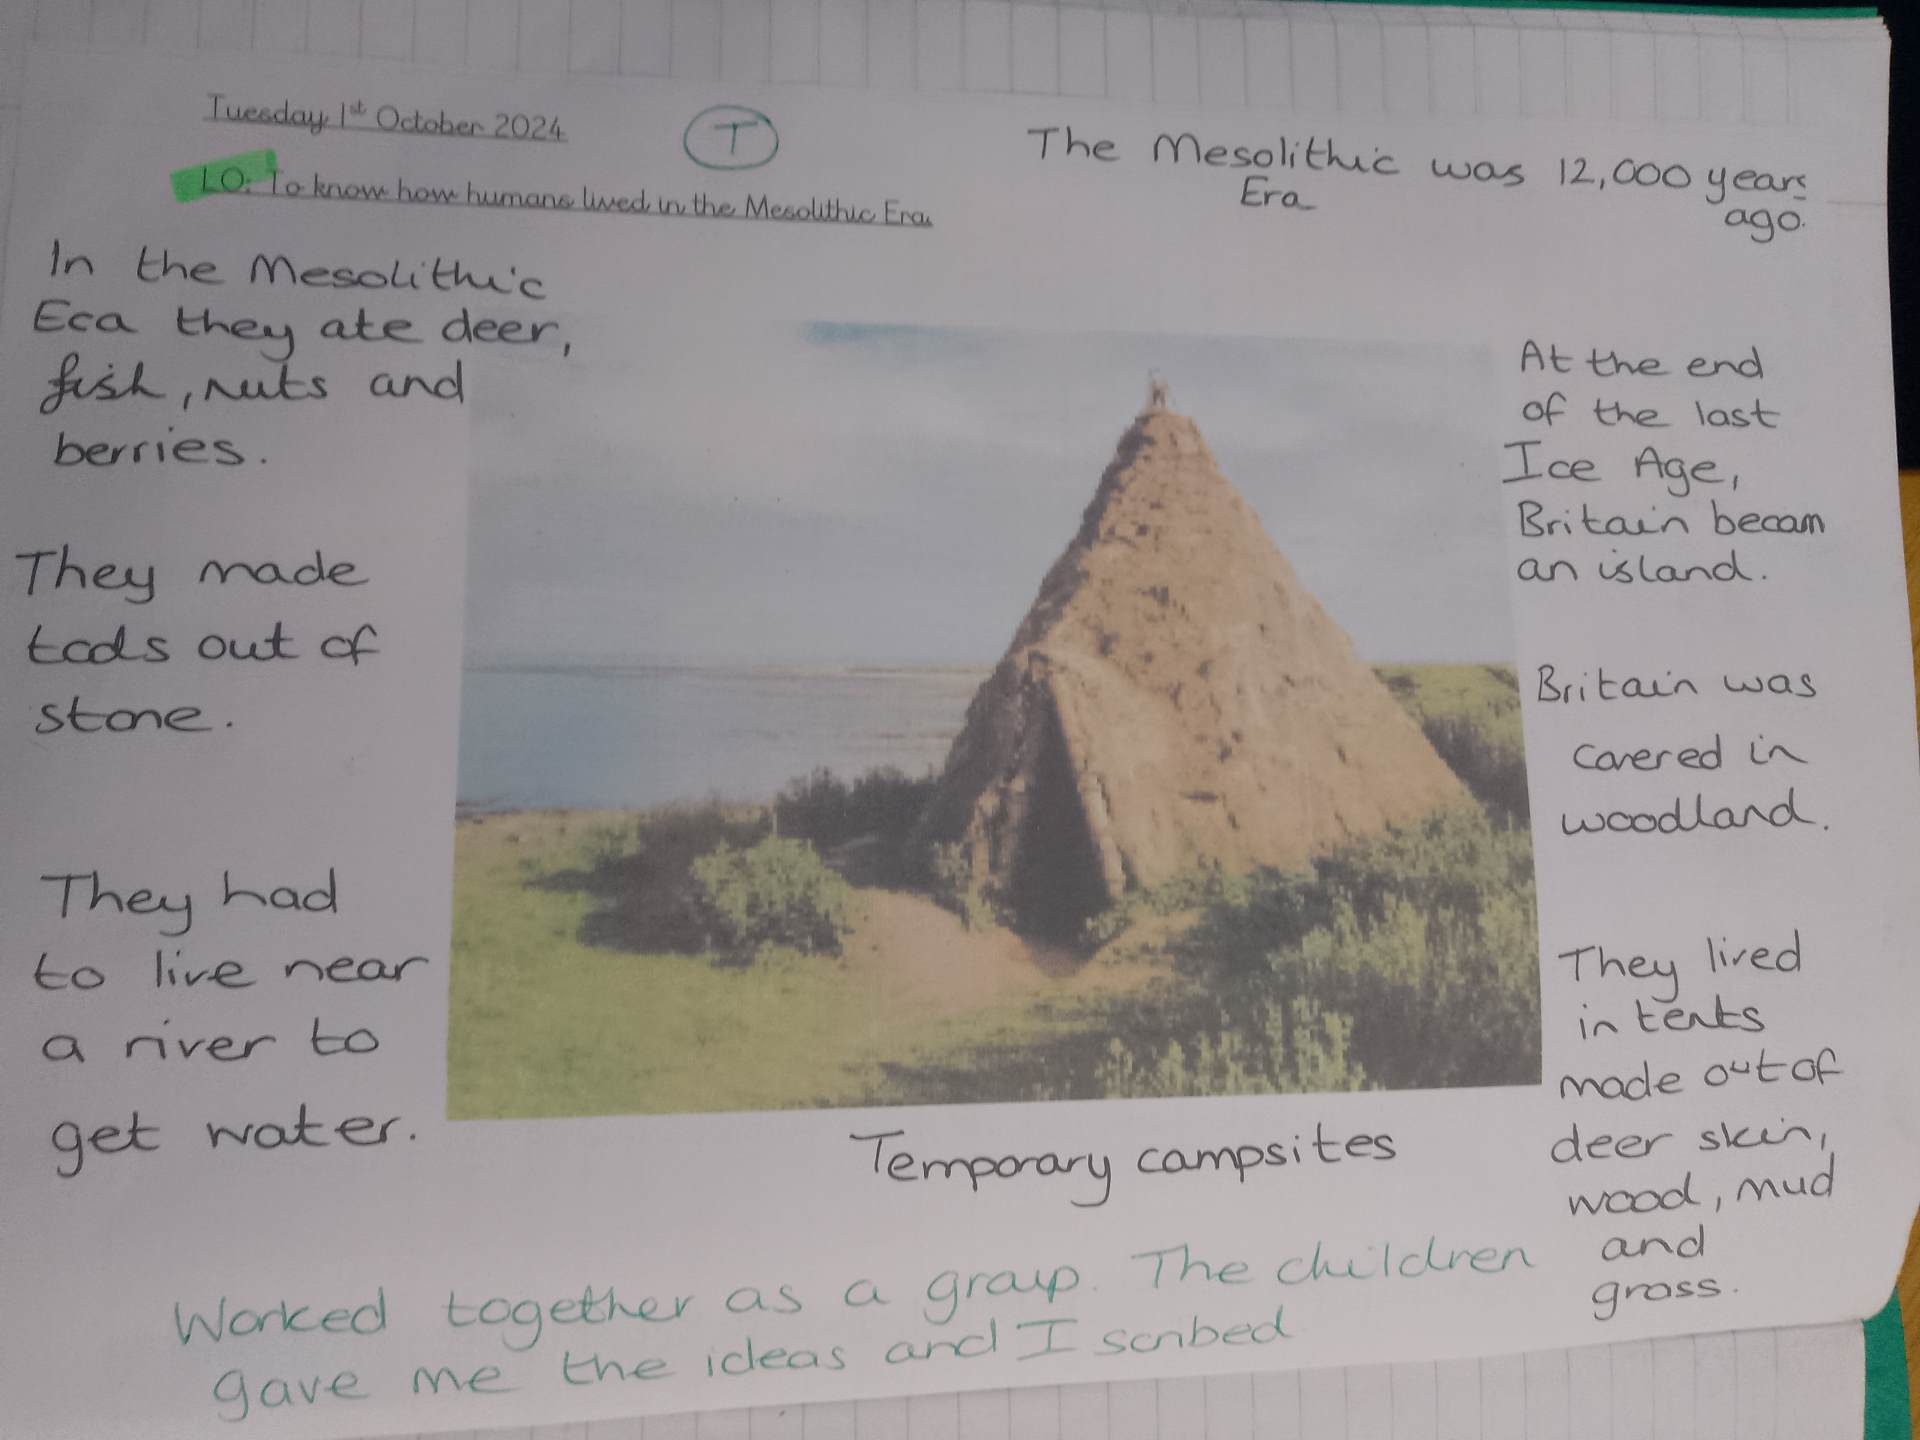 Tuesday 1st October 2024
T
LO: To know how humans lived in the Mesolithic Era.
The Mesolithic was 12,000 years
Era
ago.
In the Mesolithic
Era they ate deer,
fish, nuts and
berries.
They made
tools out of
stone.
They had
to live near
a river to
get water.
At the end
of the last
Ice Age,
Britain becam
an island.
Britain was
covered in
woodland.
They lived
in tents
made out of
deer skin,
wood, mud
and
grass.
Temporary campsites
Worked together as a group. The children
gave me the ideas and I scribed